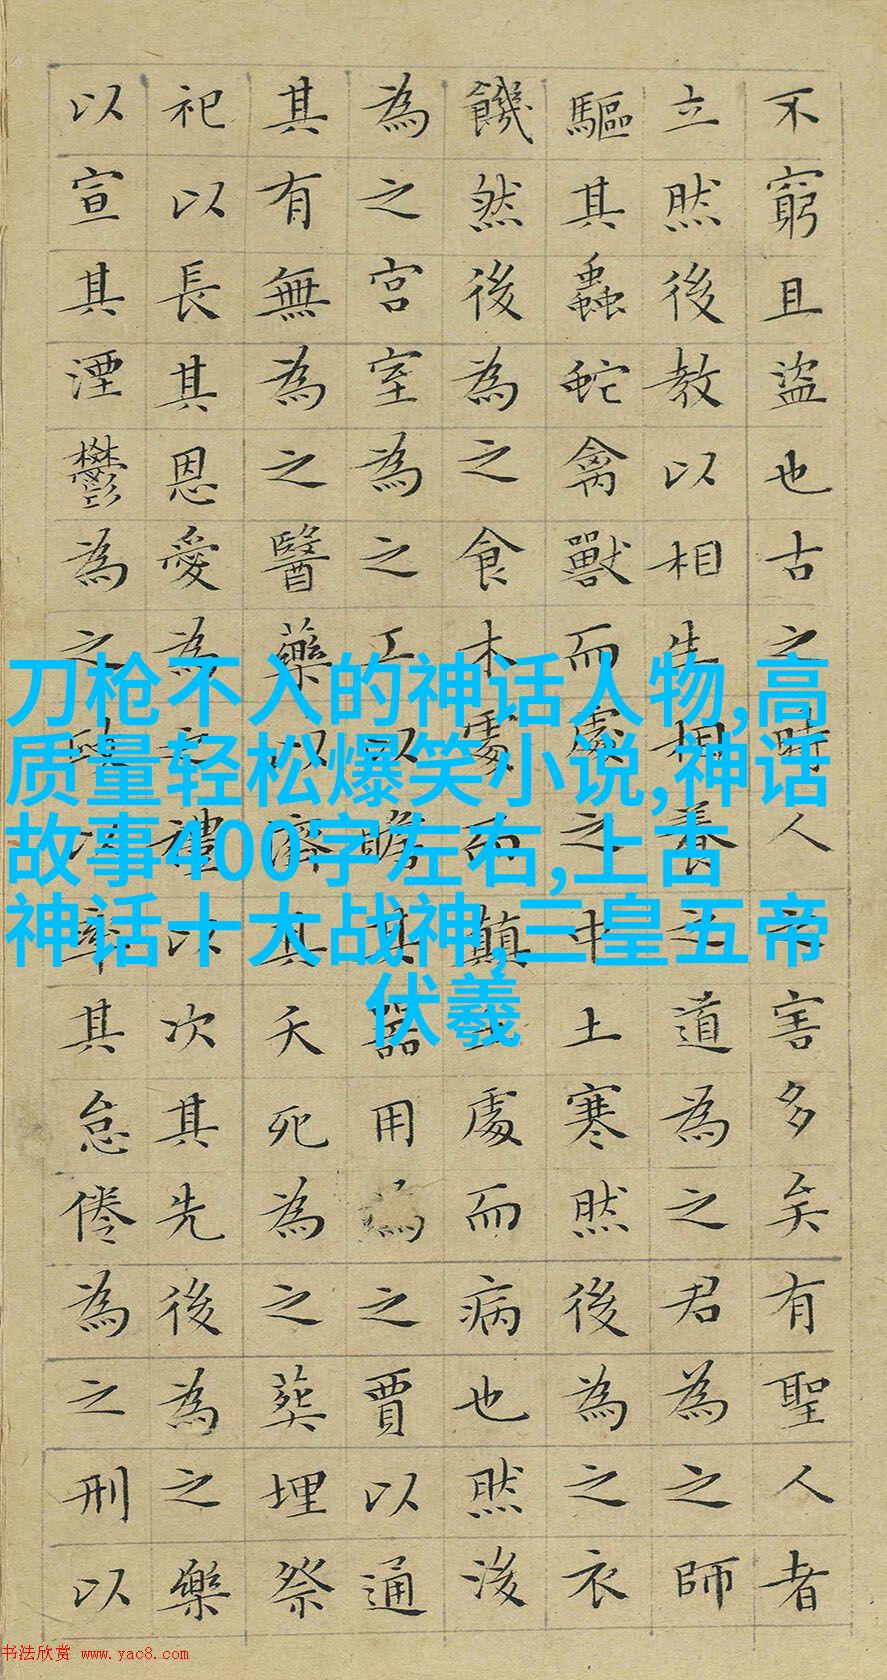 不窮且盜也古之時人之害多矣有聖人者
立然後教以相生相養之道為之君為之師
驅其蟲蛇禽獸而處之中土寒然後為之衣
饑然後為之食木處而顛土處而病也然後
為之宮室為之工以贍其器用為之賈以通
其有無為之醫藥以濟其夭死為之葬埋祭
祀以長其恩愛為之禮以次其先後為之樂
以宣其湮鬱為之政以率其怠倦為之刑以
刀枪不入的神话人物,高
质量轻松爆笑小说,神话
故事400字左右,上古
神话十大战神,三皇五帝
伏羲
书法欣赏 www.yac8.com